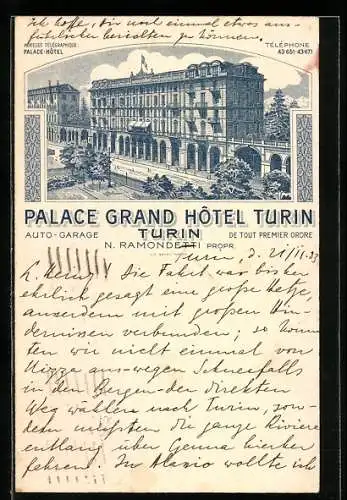 Ich hoffe, Dir noch einmal etwas aus-
führlicher berichten zu können.
ADRESSE TÉLÉGRAPHIQUE
PALACE-HÔTEL
TÉLÉPHONE
43651-43671
PALACE GRAND HÔTEL TURIN
AUTO-GARAGE
TURIN
DE TOUT PREMIER ORDRE
N. RAMONDETTI PROPR.
Turin, d. 21/11.33
L. Die Fahrt war bisher
ehrlich gesagt eine große Hetze,
ausserdem mit großen Hin-
dernissen verbunden; so konn-
ten wir nicht einmal von
Nizza aus wegen Schneefalls
in den Bergen den direkten
Weg wählen nach Turin, son-
dern mußten die ganze Riviera
entlang über Genua hierher
fahren. In Alassio wollte ich